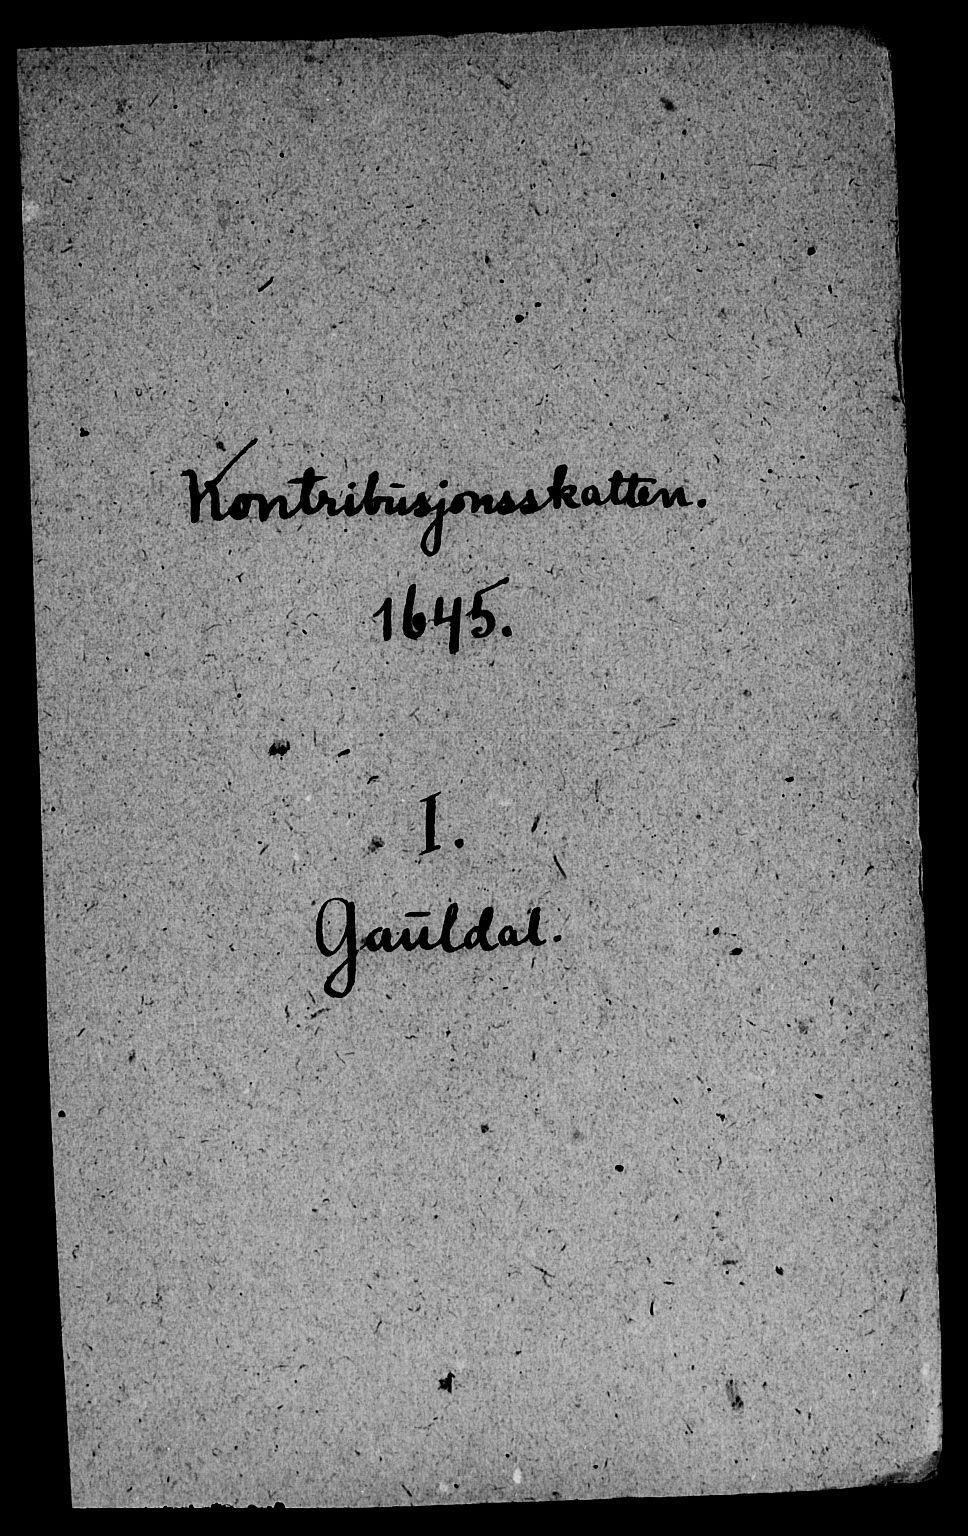 Kontribusjonsskatten.
1645.
I.
Gauldal.